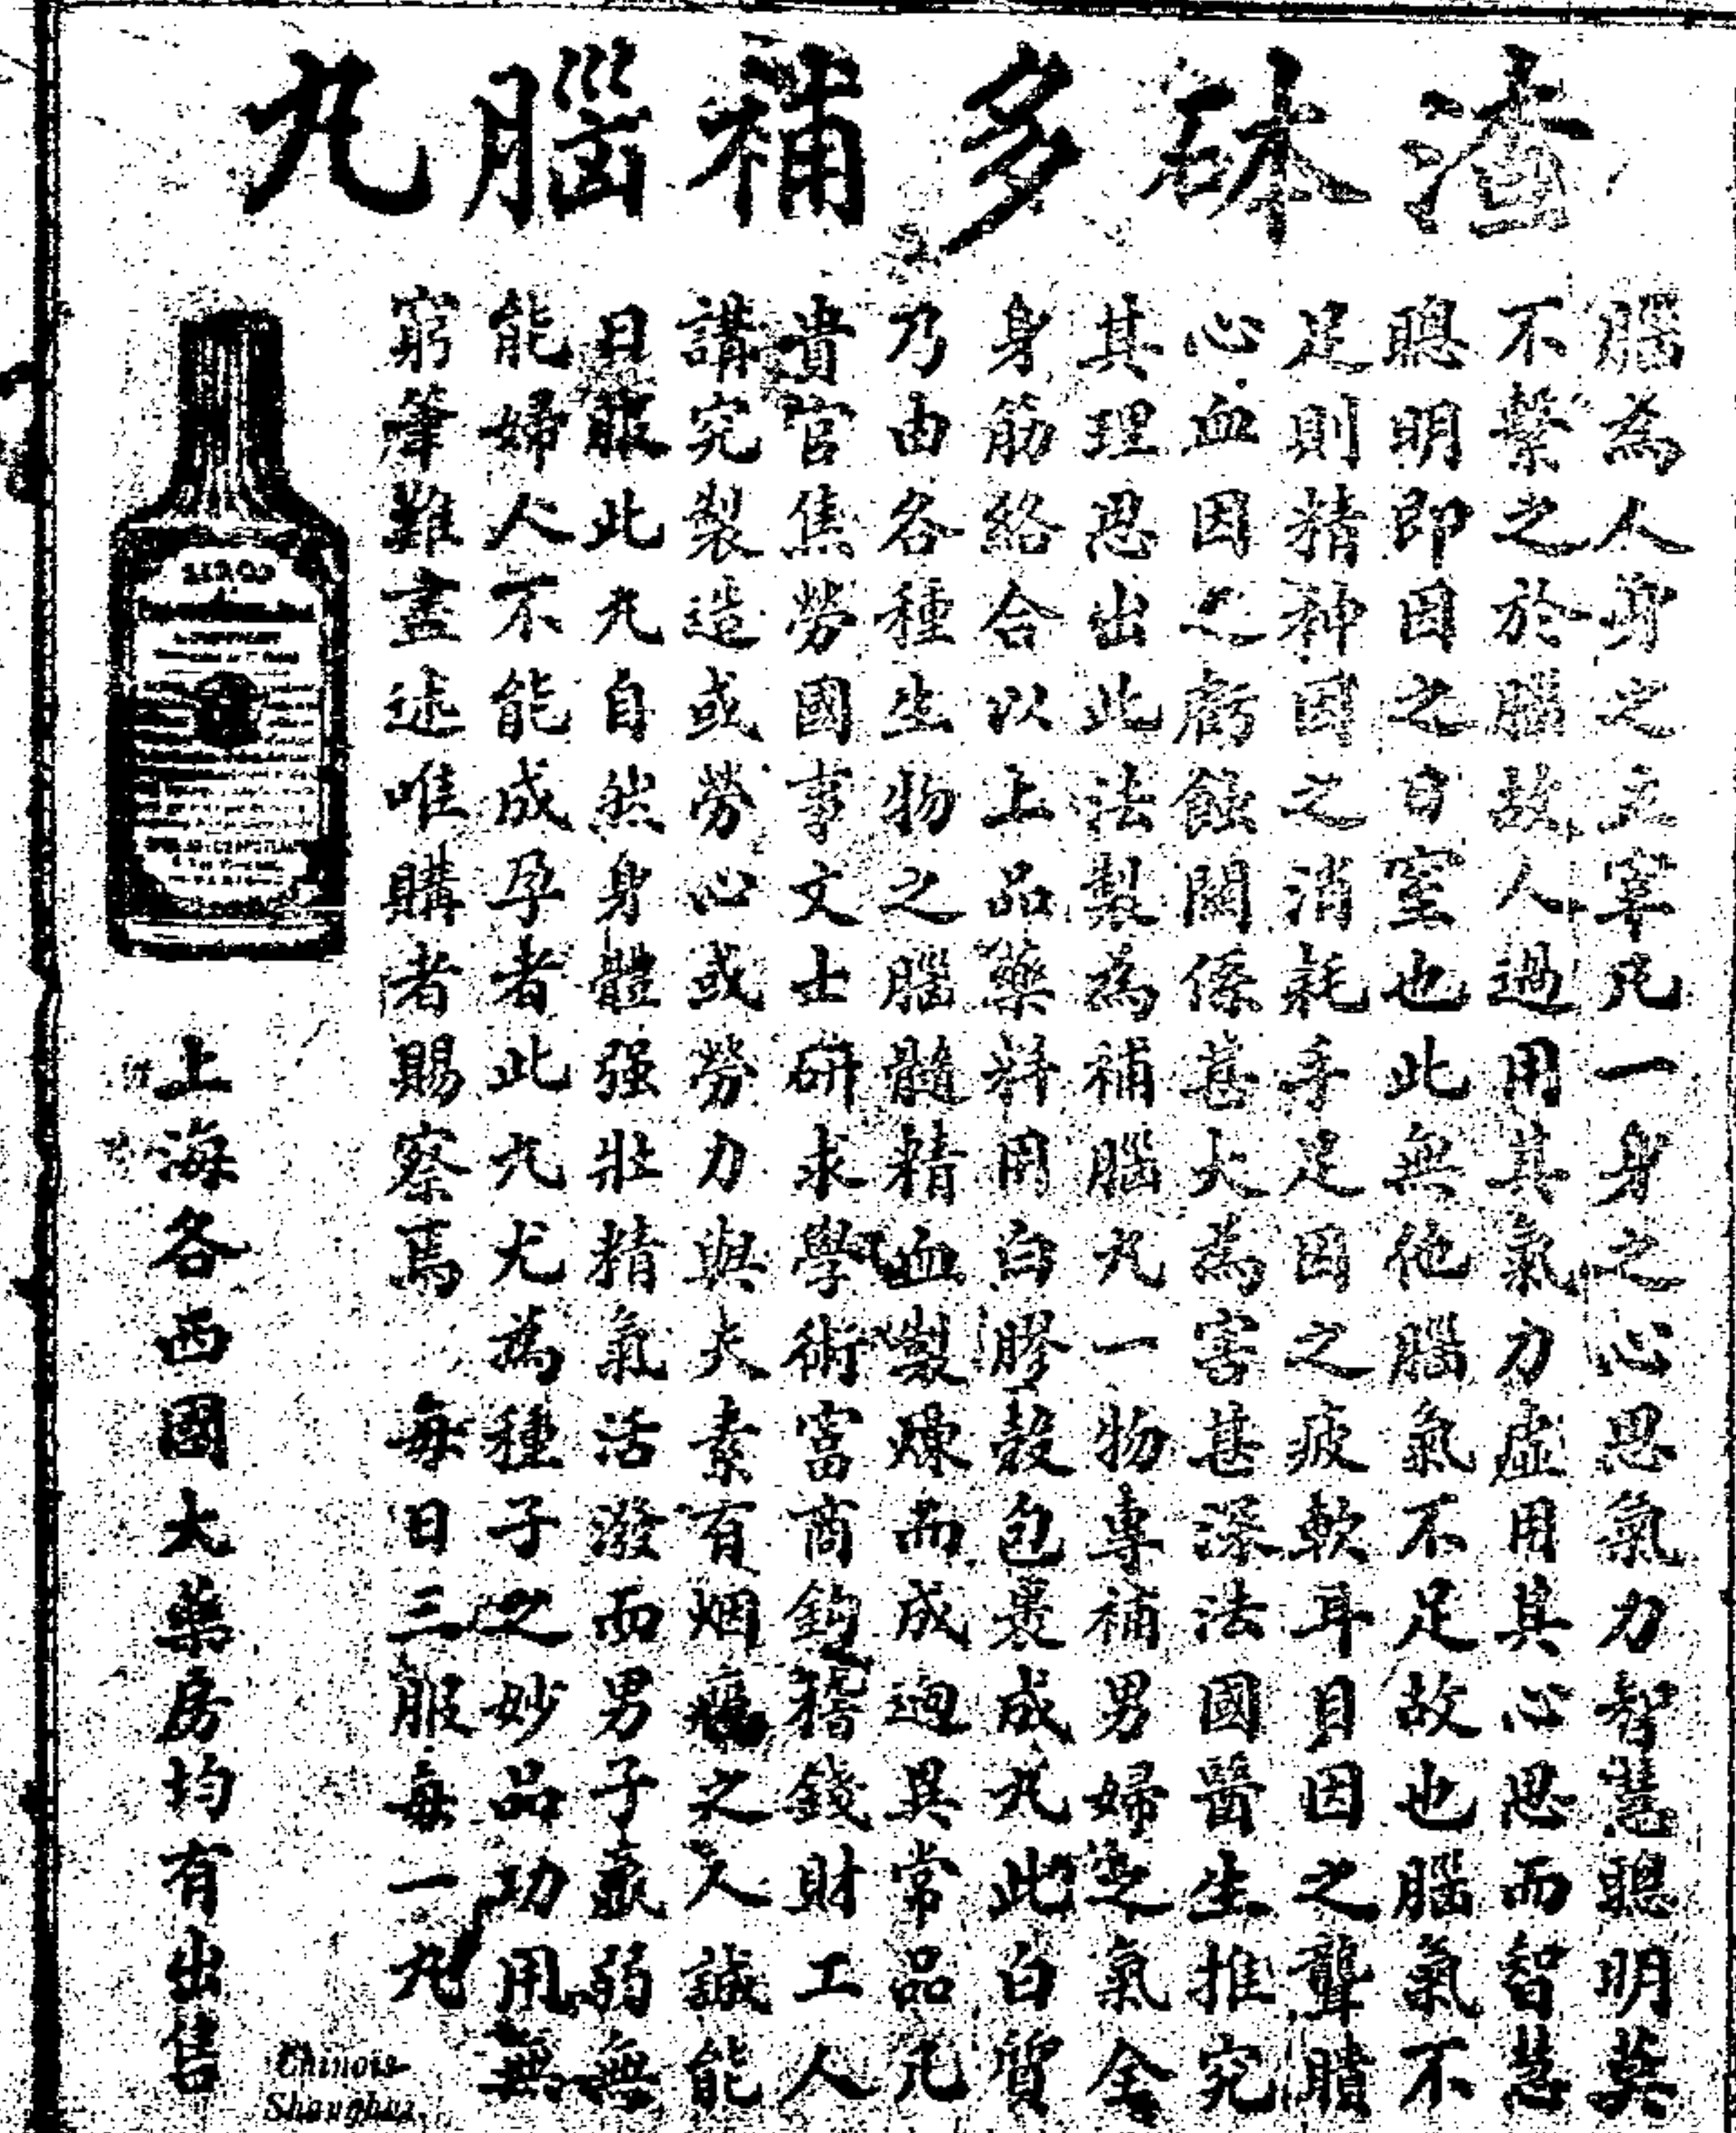 渣砵多補腦丸
腦為人身之主宰凡一身之心思氣力智慧聰明莫
不繫之於腦故人過用其氣力虛用其心思而智慧
聰明即因之日窒也此無他腦氣不足故也腦氣不
足則精神因之消耗手足因之疲軟耳目因之聾聵
心血因之虧蝕關係甚大為害甚深法國醫生推究
其理思出此法製為補腦丸一物專補男婦之氣全
身筋絡合以上品藥料用白膠殼包裹成丸此白質
乃由各種生物之腦髓精血製煉而成迥異常品凡
貴官焦勞國事文士研求學術富商鈎稽錢財工人
講究製造或勞心或勞力與夫素有烟癮之人誠能
日服此丸自然身體强壯精氣活潑而男子羸弱無
能婦人不能成孕者此丸尤為種子之妙品功用無
窮筆難盡述唯購者賜察焉 每日三服每一丸
SIROP
上海各西國大藥房均有出售
Chinois
Shanghai